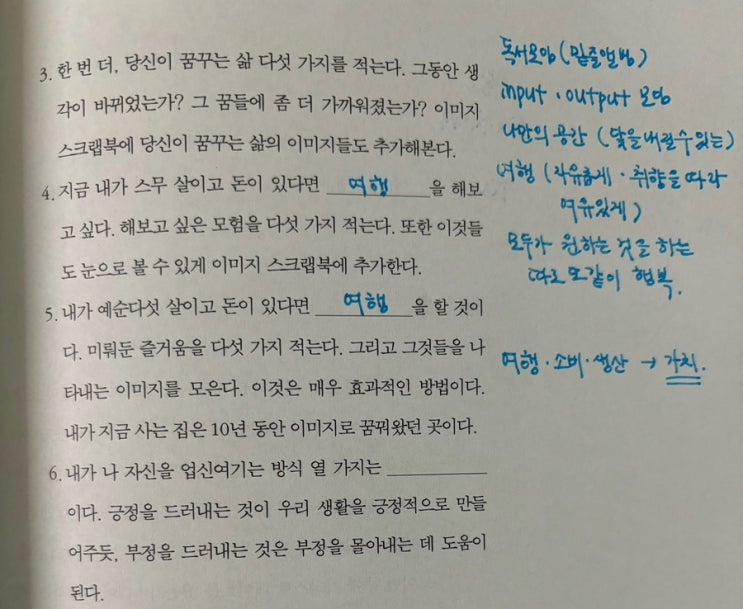 3. 한 번 더, 당신이 꿈꾸는 삶 다섯 가지를 적는다. 그동안 생
각이 바뀌었는가? 그 꿈들에 좀 더 가까워졌는가? 이미지
스크랩북에 당신이 꿈꾸는 삶의 이미지들도 추가해본다.
4. 지금 내가 스무 살이고 돈이 있다면 여행을 해보
고 싶다. 해보고 싶은 모험을 다섯 가지 적는다. 또한 이것들
도 눈으로 볼 수 있게 이미지 스크랩북에 추가한다.
5. 내가 예순다섯 살이고 돈이 있다면 여행을 할 것이
다. 미뤄둔 즐거움을 다섯 가지 적는다. 그리고 그것들을 나
타내는 이미지를 모은다. 이것은 매우 효과적인 방법이다.
내가 지금 사는 집은 10년 동안 이미지로 꿈꿔왔던 곳이다.
6. 내가 나 자신을 업신여기는 방식 열 가지는 ________
이다. 긍정을 드러내는 것이 우리 생활을 긍정적으로 만들
어주듯, 부정을 드러내는 것은 부정을 몰아내는 데 도움이
된다.
독서모임 (밑줄앨범)
input · output 모임
나만의 공간 (닻을 내릴 수 있는)
여행 (자유롭게 · 취향을 따라
여유있게)
모두가 원하는 것을 하는
따로 또 같이 행복.
여행 · 소비 · 생산 → 가치.